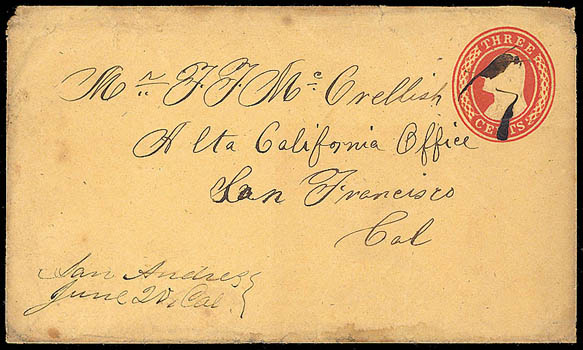 THREE
CENTS
Mr. F. F. Mc. Crellish
Alta California Office
San Francisco
Cal
San Andres
June 20, Cal